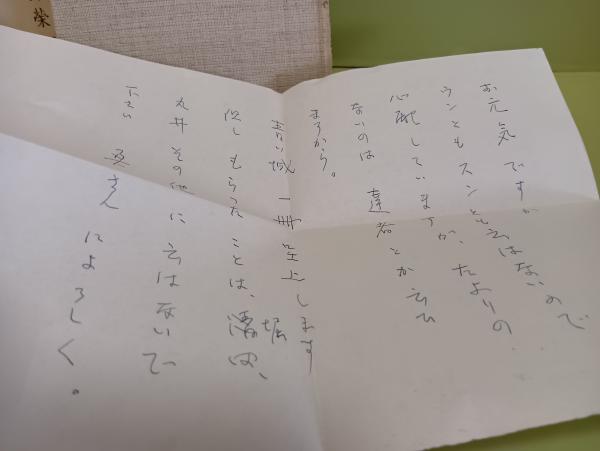 榮
お元気ですか
ウンともスンとも云はないので
心配していますが、たよりの
ないのは達者とか云ひ
ますから。
青い城一冊呈上します
但しもらったことは、堀、
丸井その他に云はないで
下さい さん によろしく。